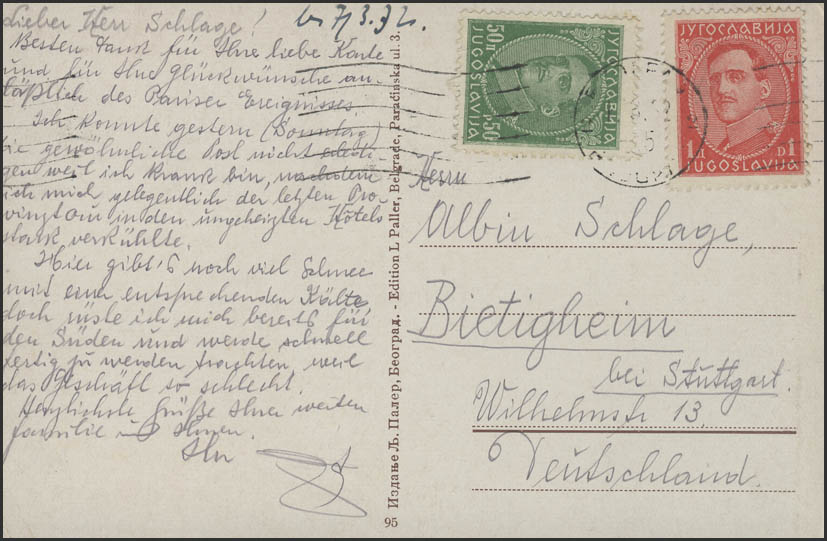 Lieber Herr Schlage!
7/3.32.
Besten Dank für Ihre liebe Karte
und für Ihre Glückwünsche an-
läßlich des Pariser Ereignisses.
Ich konnte gestern (Sonntag)
die gewöhnliche Post nicht erledi-
gen weil ich krank bin, nachdem
ich mich gelegentlich der letzten Pro-
vinztour in den ungeheizten Hotels
stark verkühlte.
Hier gibt's noch viel Schnee
mit einer entsprechenden Kälte
doch rüste ich mich bereits für
den Süden und werde schnell
fertig zu werden trachten, weil
das Geschäft so schlecht.
Herzlichste Grüße Ihrer werten
Familie und Ihnen.
Ihr
95 Издање Љ. Палер, Београд. - Edition L Paller, Belgrade, Paradinska ul. 3.
50п
P.50
ЈУГОСЛАВИЈА
JUGOSLAVIJA
ЈУГОСЛАВИЈА
1 D 1
JUGOSLAVIJA
Herrn
Albin Schlage,
Bietigheim
bei Stuttgart.
Wilhelmstr 13.
Deutschland.